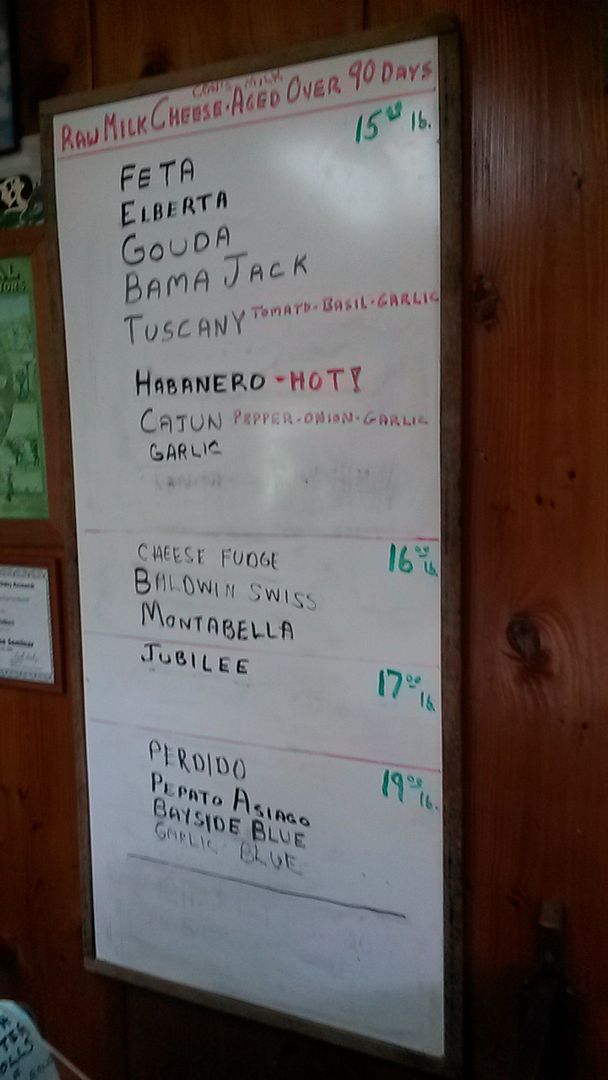 COW'S MILK
RAW MILK CHEESE·AGED OVER 90 DAYS
15 00 lb.
FETA
ELBERTA
GOUDA
BAMA JACK
TUSCANY TOMATO-BASIL-GARLIC
HABANERO - HOT!
CAJUN PEPPER-ONION-GARLIC
GARLIC
CHEESE FUDGE 16 00 lb
BALDWIN SWISS
MONTABELLA
JUBILEE 17 00 lb
PERDIDO 19 00 lb.
PEPATO ASIAGO
BAYSIDE BLUE
GARLIC BLUE